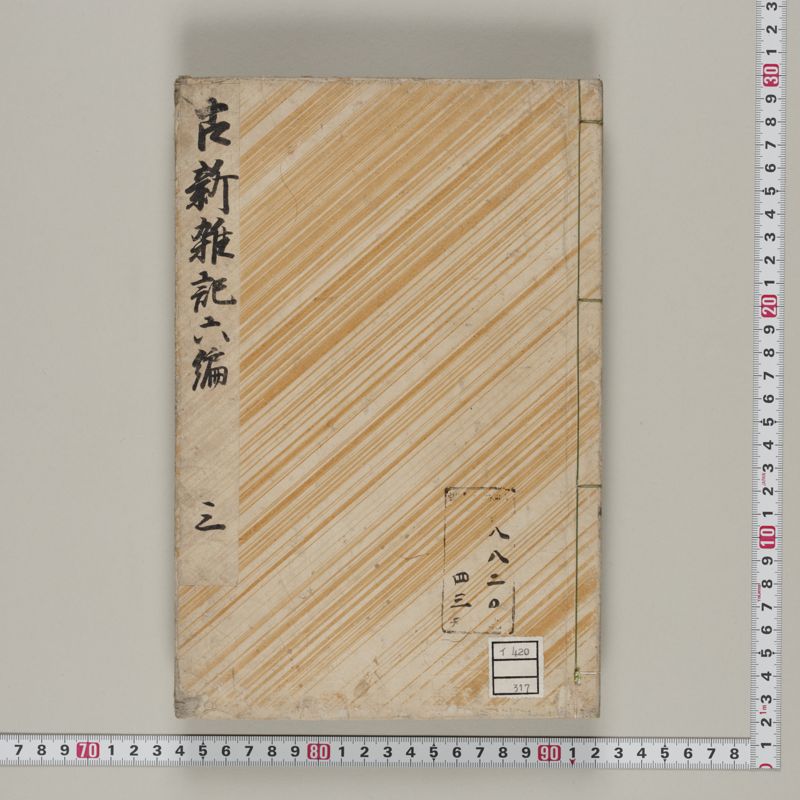 古新雑記六編
三
八八二〇
四三
イ 420
317
7 8 9 70 1 2 3 4 5 6 7 8 9 80 1 2 3 4 5 6 7 8 9 90 1 2 3 4 5 6 7 8
3 2 1 30 9 8 7 6 5 4 3 2 1 20 9 8 7 6 5 4 3 2 1 10 9 8 7 6 5 4 3 2 1
1m